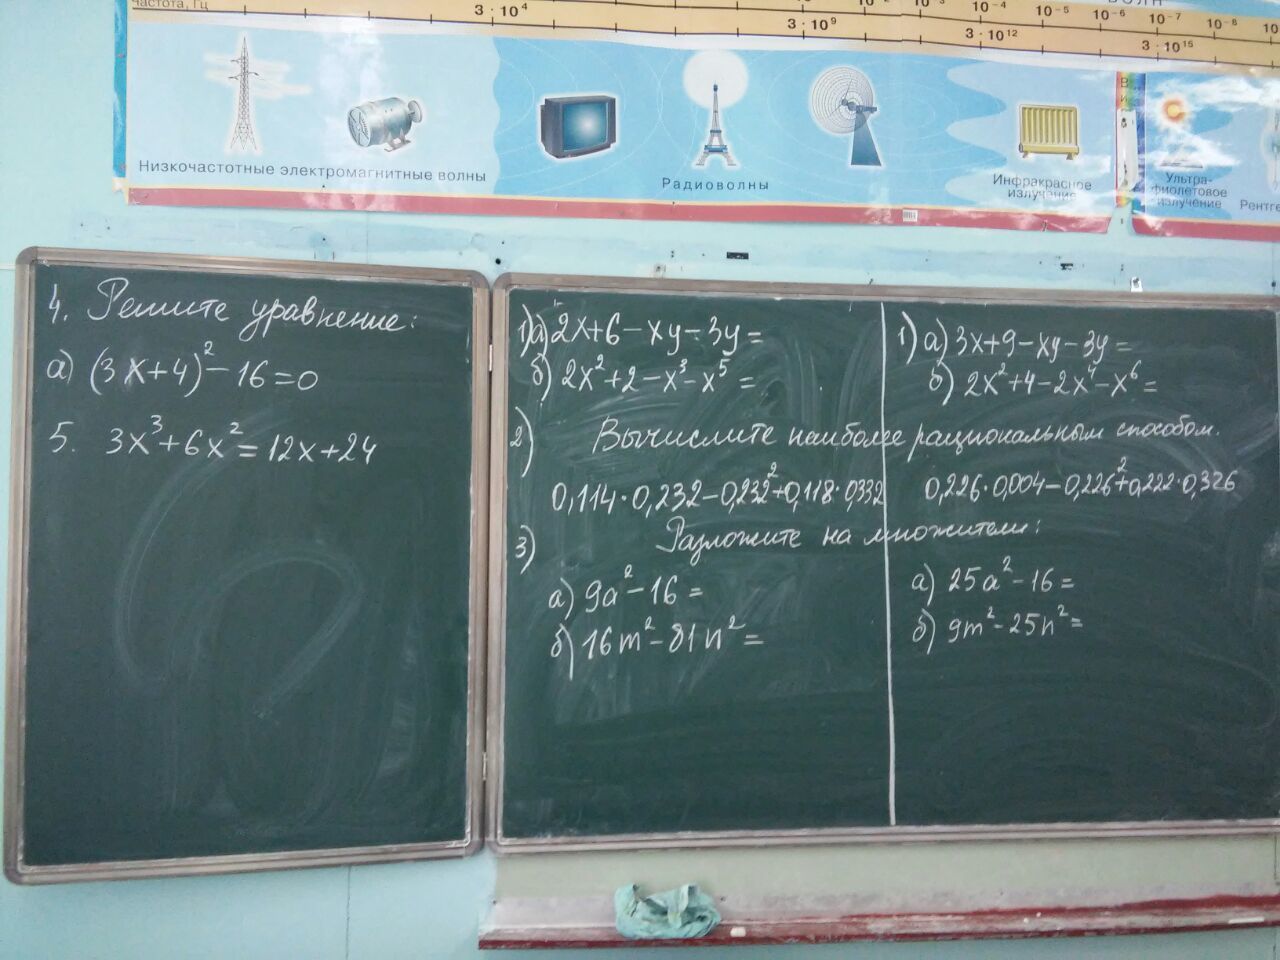 частота, Гц
3 · 10⁴
3 · 10⁹
10⁻⁴
10⁻⁵
10⁻⁶
10⁻⁷
10⁻⁸
3 · 10¹²
3 · 10¹⁵
Низкочастотные электромагнитные волны
Радиоволны
Инфракрасное
излучение
Ультра-
фиолетовое
излучение
Рентге
4. Решите уравнение:
а) (3x+4)² - 16 = 0
5. 3x³ + 6x² = 12x + 24
1) а) 2x + 6 - xy - 3y =
б) 2x² + 2 - x³ - x⁵ =
1) а) 3x + 9 - xy - 3y =
б) 2x² + 4 - 2x⁴ - x⁶ =
2) Вычислите наиболее рациональным способом.
0,114 · 0,232 - 0,232² + 0,118 · 0,332
0,226 · 0,004 - 0,226² + 0,222 · 0,326
3) Разложите на множители:
а) 9a² - 16 =
б) 16m² - 81n² =
а) 25a² - 16 =
б) 9m² - 25n² =